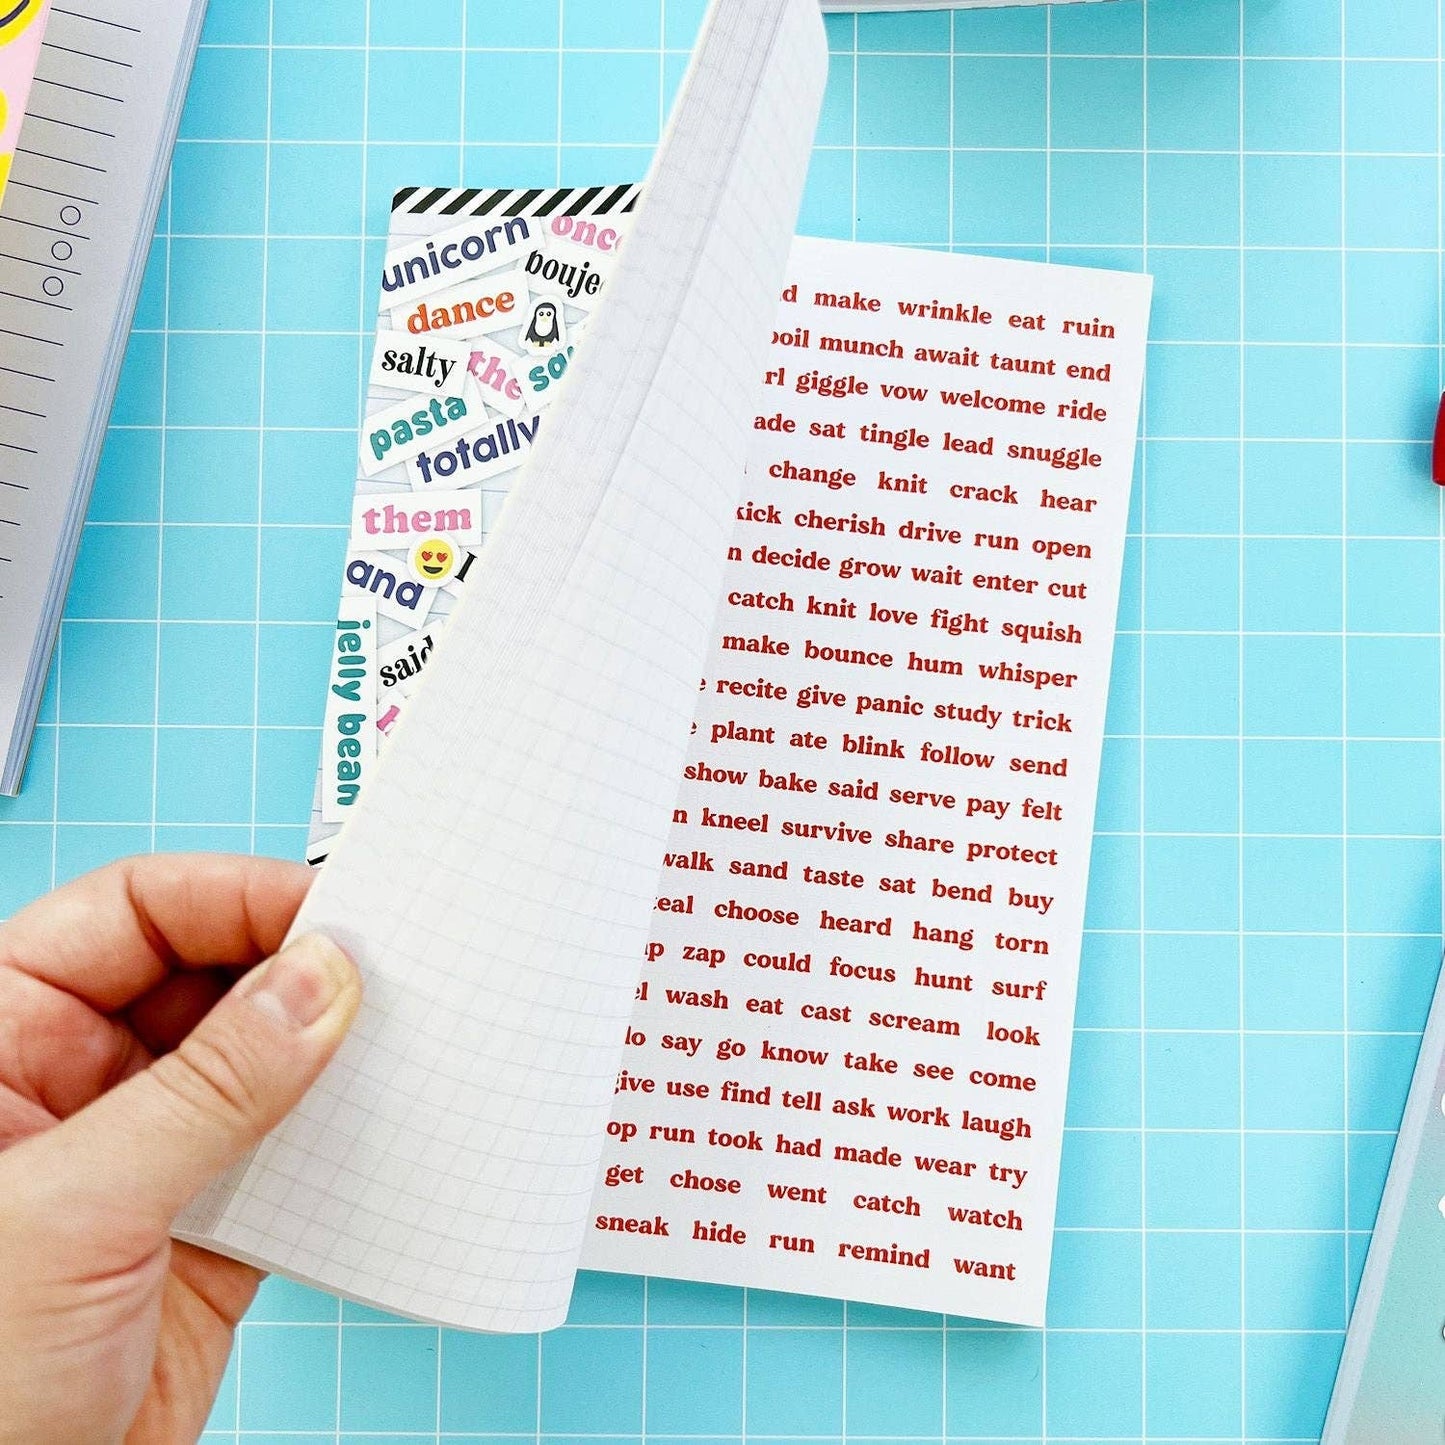 unicorn
dance
salty
pasta
totally
them
and
said
jelly bean
make wrinkle eat ruin
munch await taunt end
giggle vow welcome ride
sat tingle lead snuggle
change knit crack hear
kick cherish drive run open
decide grow wait enter cut
catch knit love fight squish
make bounce hum whisper
recite give panic study trick
plant ate blink follow send
show bake said serve pay felt
kneel survive share protect
walk sand taste sat bend buy
choose heard hang torn
zap could focus hunt surf
wash eat cast scream look
say go know take see come
give use find tell ask work laugh
run took had made wear try
get chose went catch watch
sneak hide run remind want